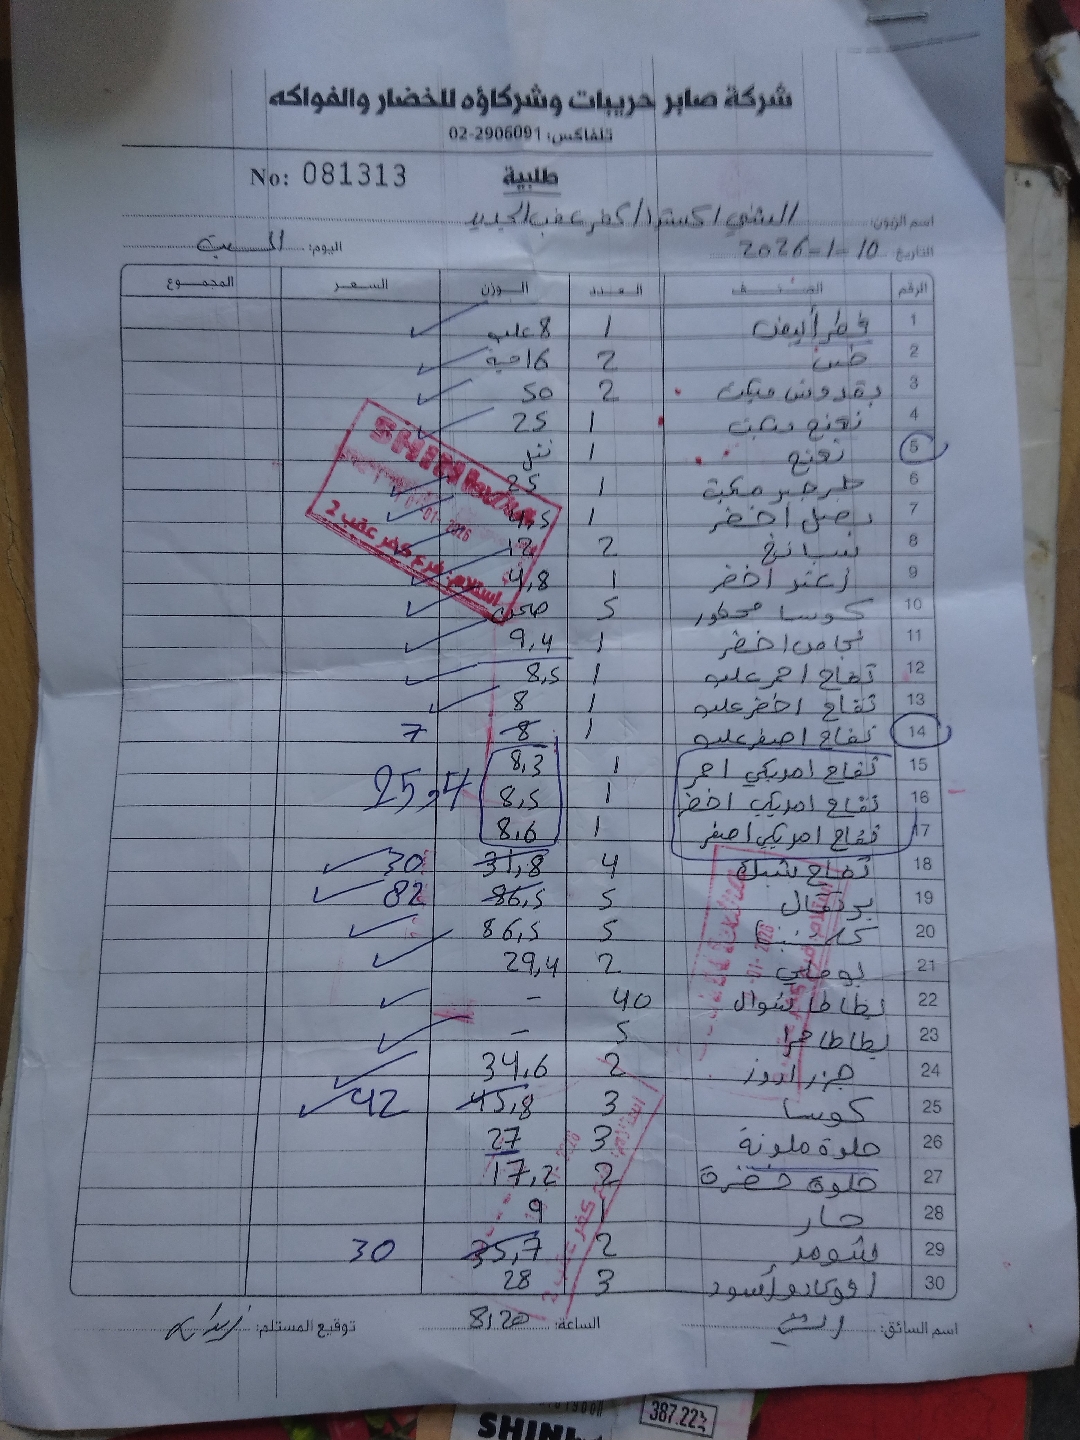 شركة صابر حريبات وشركاؤه للخضار والفواكه
تلفاكس: 02-2906091
No: 081313
طلبية
اسم الزبون: الشني اكسترا / كفر عقب الجديد
التاريخ: 10-1-2026 اليوم: السبت
الرقم الصنف العدد الوزن السعر المجموع
1 فطر أبيض 1 8 علب
2 خس 2 16 حبة
3 بقدونس مكبت 2 50
4 نعنع مكبت 1 25
5 نعنع 1
6 جرجير مكبت 1 25
7 بصل اخضر 1 4,5
8 سبانخ 2 12
9 زعتر اخضر 1 4,8
10 كوسا محفور 5 صحن
11 اخضر 1 9,4
12 تفاح احمر عليو 1 8,5
13 تفاح اخضر عليو 1 8
14 تفاح اصفر عليو 1 8 7
15 تفاح امريكي احمر 1 8,3
16 تفاح امريكي اخضر 1 8,5 25,4
17 تفاح امريكي اصفر 1 8,6
18 تفاح شبك 4 31,8 30
19 برتقال 5 86,5 82
20 5 86,5
21 بوملي 2 29,4
22 بطاطا شوال 40 –
23 بطاطا حمرا 5 –
24 جزر 2 34,6
25 كوسا 3 45,8 42
26 حلوة ملونة 3 27
27 حلوة خضرة 2 17,2
28 حار 1 9
29 شومر 2 35,7 30
30 افوكادو أسود 3 28
اسم السائق: الساعة: 8,20 توقيع المستلم:
SHINI
01-2026
استلام: فرع كفر عقب 2
SHINI
387.22